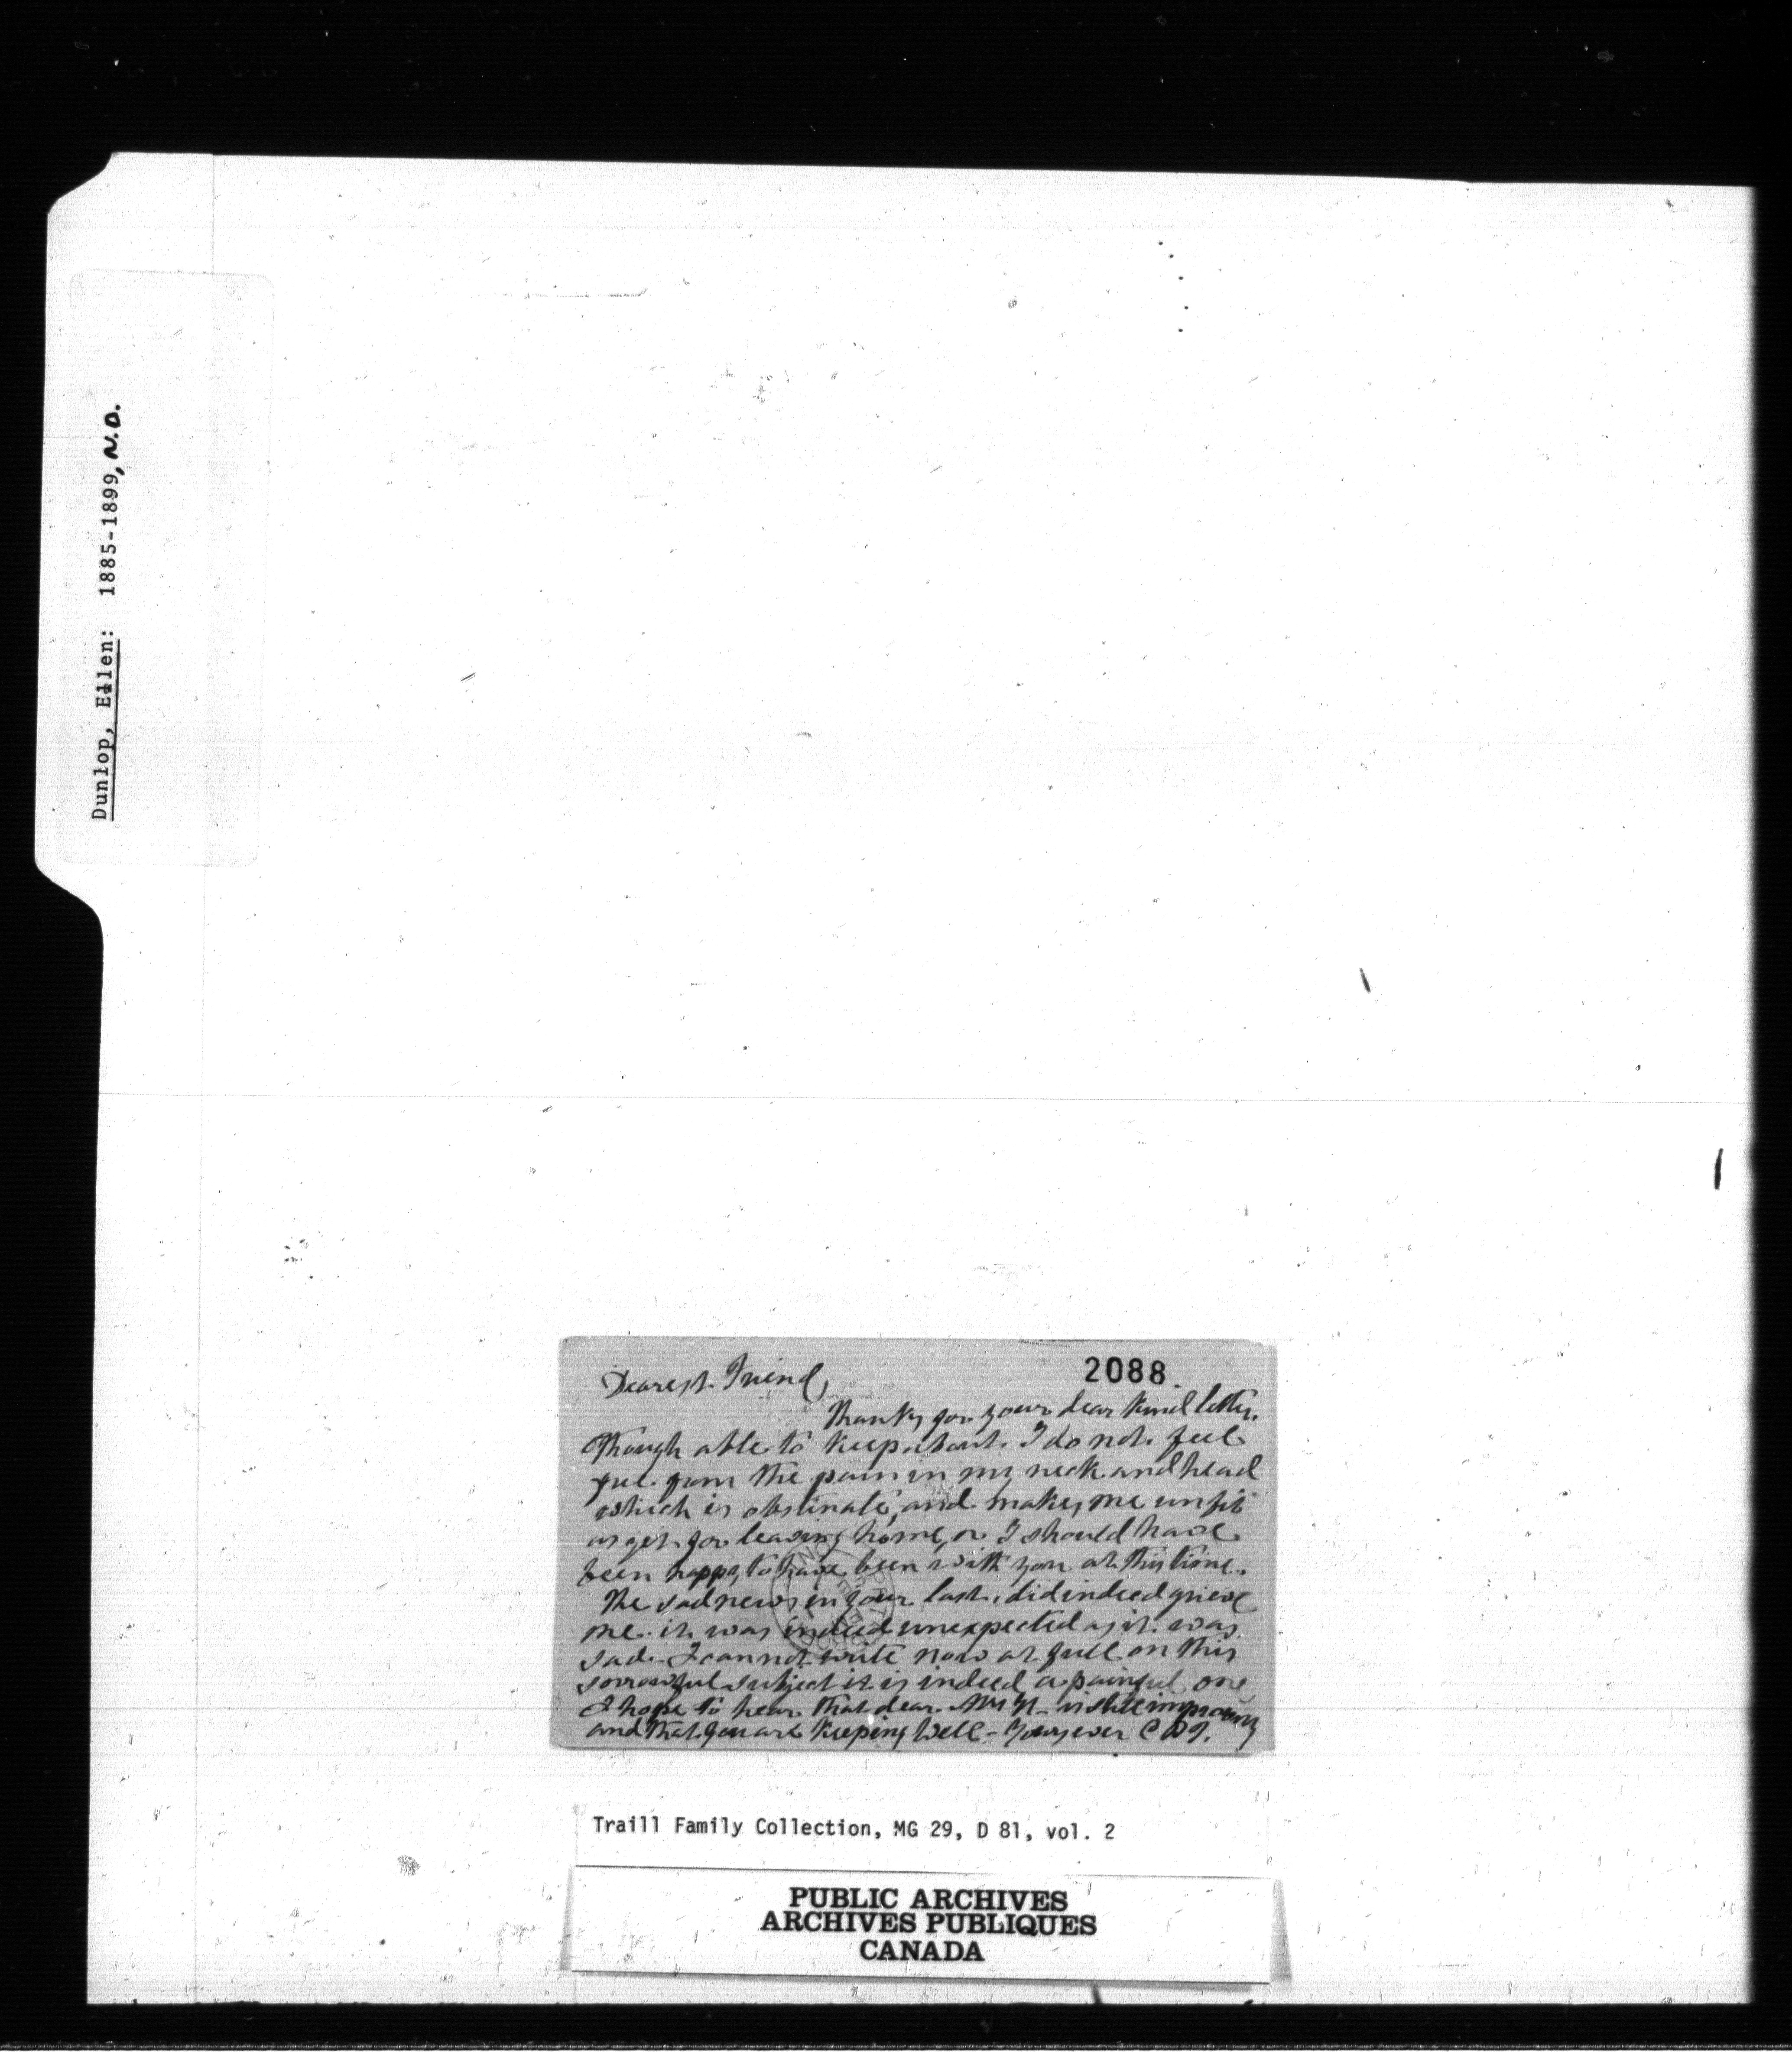 Dunlop, Ellen: 1885-1899, N.D.
2088
Dearest Friend,
Thanks for your dear kind letter.
Though able to keep about I do not feel
free from the pain in my neck and head
which is obstinate, and makes me unfit
as yet for leaving home, or I should have
been happy to have been with you at this time.
The sad news in your last, did indeed grieve
me it was indeed unexpected as it was
sad. I cannot write now at full on this
sorrowful subject it is indeed a painful one
I hope to hear that dear is still improving
and that you are keeping well - Yours ever C P T.
Traill Family Collection, MG 29, D 81, vol. 2
PUBLIC ARCHIVES
ARCHIVES PUBLIQUES
CANADA